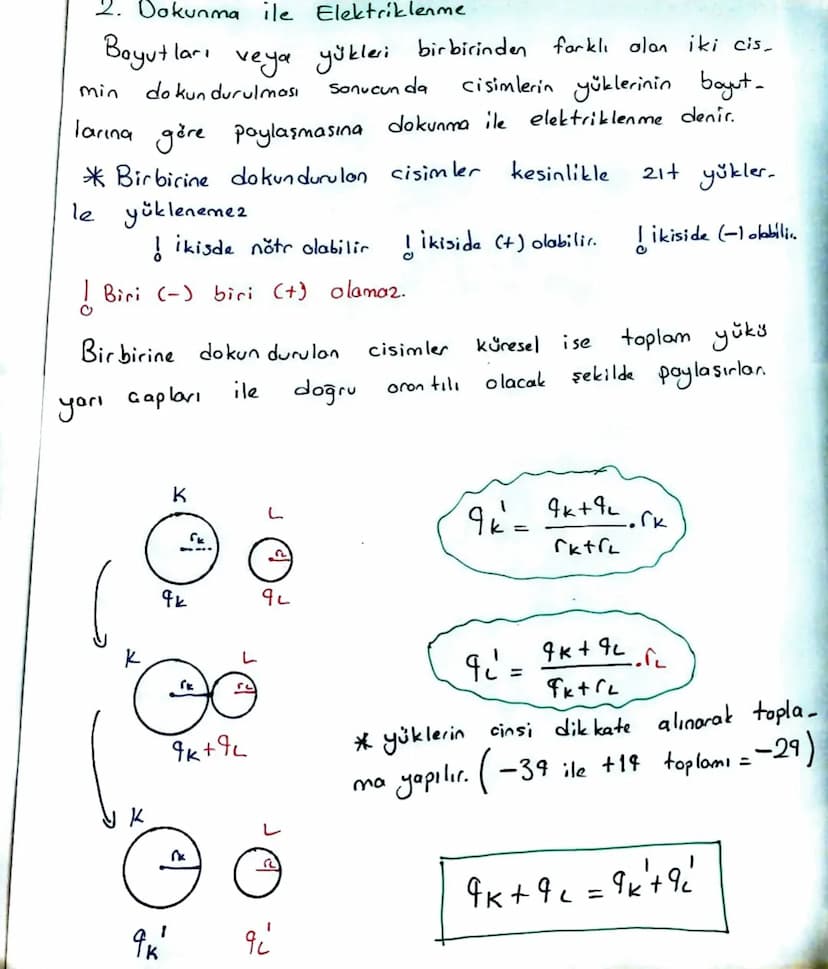 2. Dokunma ile Elektriklenme
Boyutları veya yükleri birbirinden farklı olan iki cis-
min dokundurulması sonucunda cisimlerin yüklerinin boyut-
larına göre paylaşmasına dokunma ile elektriklenme denir.
* Birbirine dokundurulan cisimler kesinlikle zıt yükler-
le yüklenemez
! ikisde nötr olabilir ! ikiside (+) olabilir. ! ikiside (-) olabilir.
! Biri (-) biri (+) olamaz.
Birbirine dokundurulan cisimler küresel ise toplam yükü
yarı çapları ile doğru orantılı olacak şekilde paylaşırlar.
K L
rK rL
qK qL
qK' = (qK+qL)/(rK+rL) . rK
K L
rK rL
qK+qL
qL' = (qK+qL)/(rK+rL) . rL
* yüklerin cinsi dikkate alınarak topla-
ma yapılır. (-3q ile +1q toplamı = -2q)
K L
rK rL
qK' qL'
qK + qL = qK' + qL'